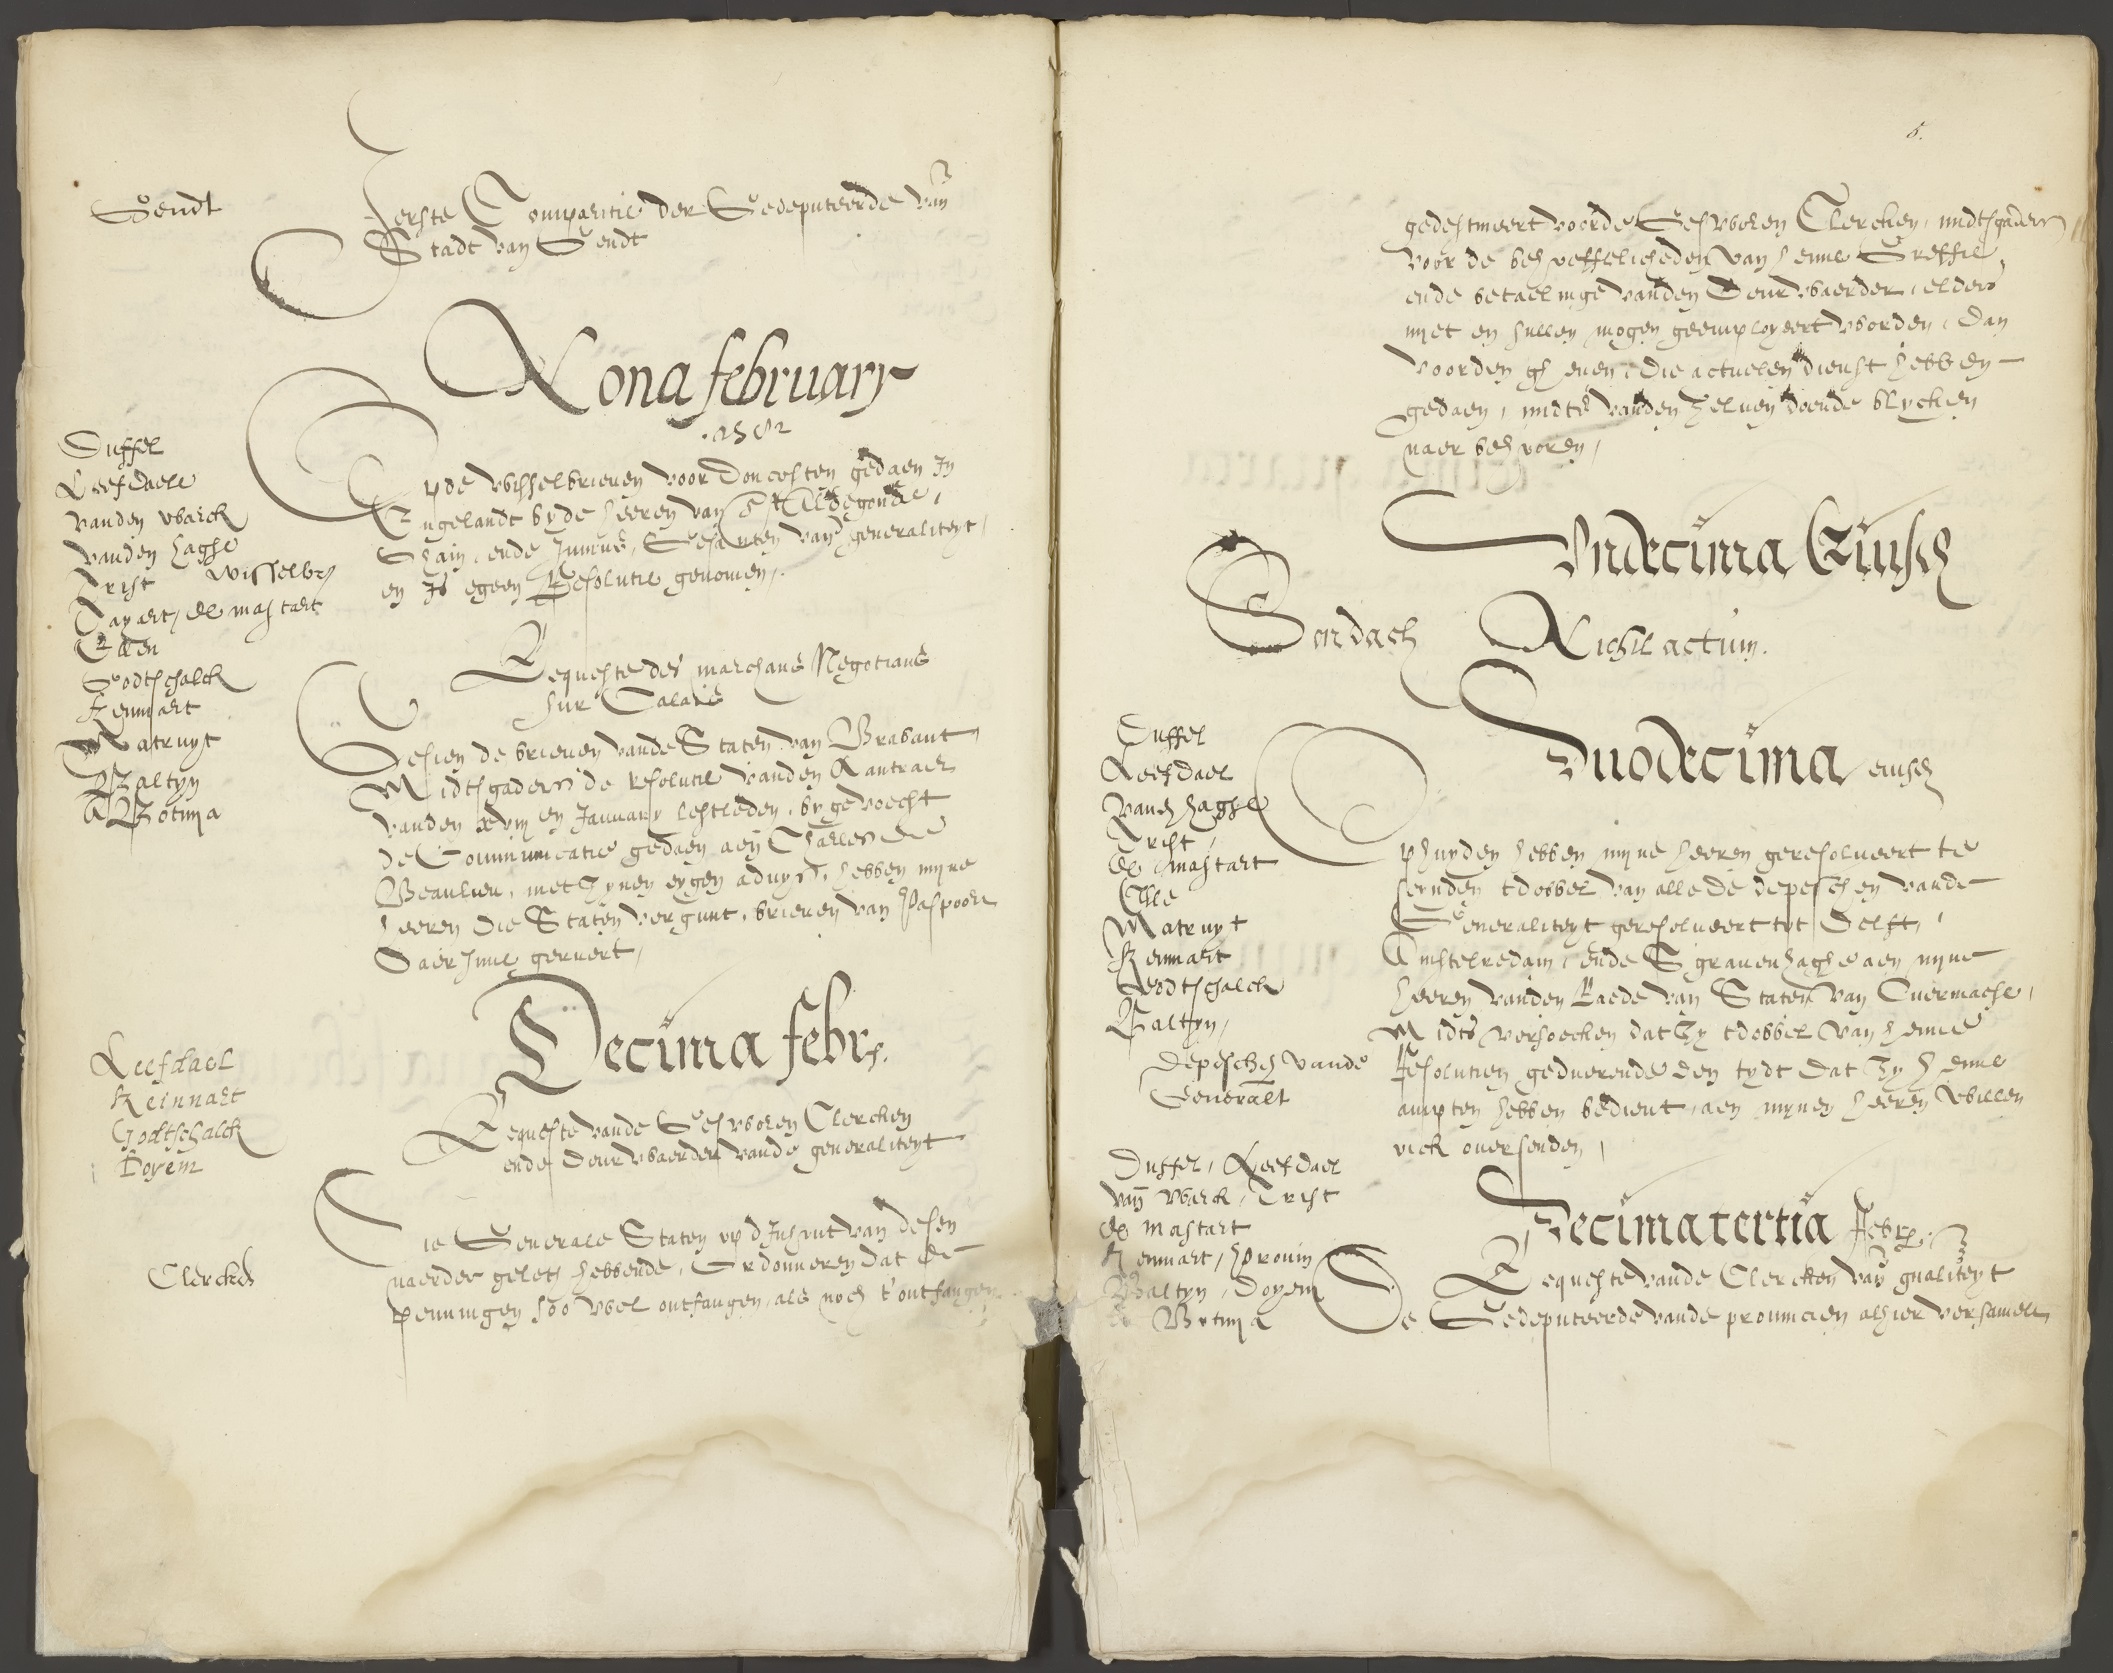 Gendt
Ierste Comparitie der Gedeputeerde van
Stadt van Gendt
Nona february
.1582
Duffel
Leefdaele
vanden Warck
vanden Haghe
Trist
Wisselbr
Tayart, de mastart
Ellen
Godtschalck
Rennart
Matruyt
Baltyn
A Botnia
Opde wisselbrieven voor doncosten gedaen In
Engelandt byde heeren van St Aldegonde,
Ghain, ende Junius, Gesanten van generaliteyt,
en Is egeen Resolutie genomen,
Requeste des marchans Negotians
sur Calais
Gesien de brieven vande Staten van Brabant
Midtsgaders de resolutie vanden Lantraet
vanden xviij en January lestleden, bygevoecht
de Communicatie gedaen aen Charles de
Beaulieu, met zynen eygen advys, hebben myne
heeren die Staten vergunt, brieven van Paspoort
Daer Inne geruert,
Decima febr.
Leefdael
Reinnart
Godtschalck
Doyem
Requeste vande Geswoeren Clercken
ende deurwaerder vande generaliteyt
Clercken
Die Generale Staten up d'Inhout van desen
naerder gelet hebbende, Ordonneren dat de
penningen soo wel ontfangen, als noch t'ontfangen
5.
gedestineert voorde Geswoeren Clercken, midtsgaders
voor de behoeffelicheden van henne Greffie,
ende betaelinge vanden Deurwaerder, elders
niet en sullen mogen geemployeert worden, dan
voorden ghenen, die actuelen dienst hebben
gedaen, midts vanden zelven doende blycken
naer behooren,
Undecima Eiusdem
Sondach Nichil actum.
Duodecima eiusdem
Duffel
Leefdael
vanden Haghe
Trist,
de mastart
Elle
Matruyt
Rennart
Godtschalck
Baltyn,
Depeschen vande
Generalt
Ophuyden hebben myne heeren geresolveert te
seynden t'dobbel van alle de depeschen vande
Generaliteyt geresolveert tot Delft,
Amstelredam, ende Sgravenhaghe aen myne
heeren vanden Raede van Staten van Overmaese,
Midts versoecken dat zy t'dobbel van henne
Resolutien geduerende den tydt dat zy henne
ampten hebben bedient, aen mynen heeren willen
oick oversenden,
Duffel, Leefdael
van Warck, Trist
de Mastart
Rennart, Provin
Baltyn, Doyem
A Botnia
Decima tertia Febr.
Requeste vande Clercken van gnaliteyt
De Gedeputeerde vande provincien alhier versamelt